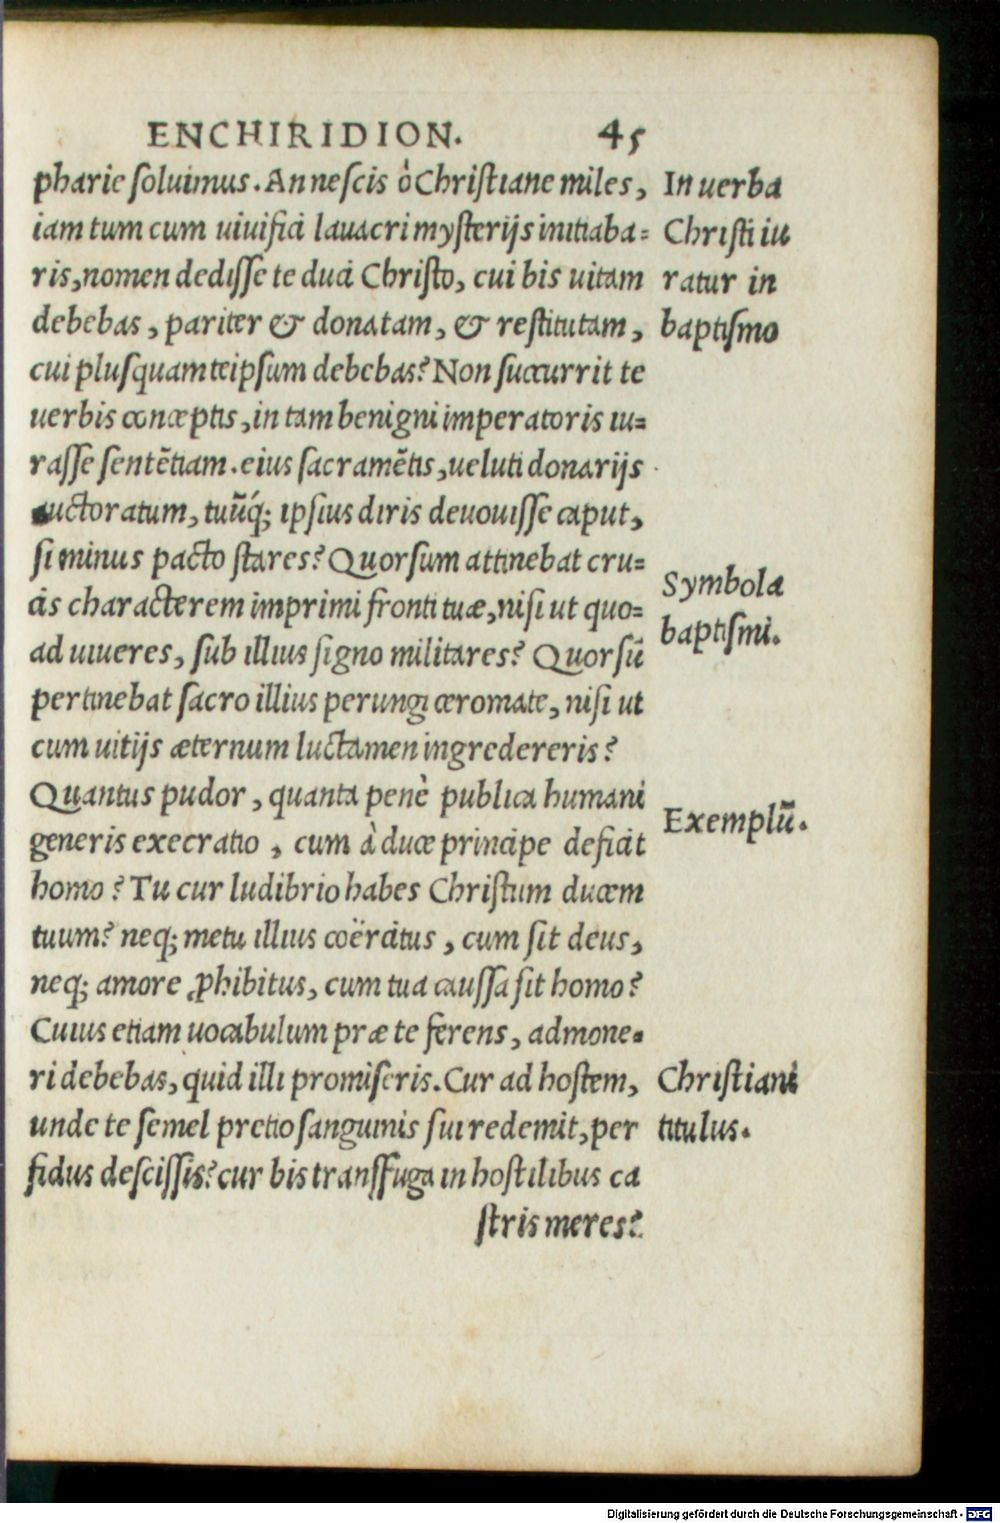 ENCHIRIDION. 45
pharie soluimus. An nescis ò Christiane miles,
iam tum cum uiuifici lauacri mysterijs initiaba=
ris, nomen dedisse te duci Christo, cui bis uitam
debebas, pariter & donatam, & restitutam,
cui plusquam teipsum debebas? Non succurrit te
uerbis conceptis, in tam benigni imperatoris iu=
rasse sentẽtiam. eius sacramẽtis, ueluti donarijs
auctoratum, tuũq́; ipsius diris deuouisse caput,
si minus pacto stares? Quorsum attinebat cru=
cis characterem imprimi fronti tuæ, nisi ut quo=
ad uiueres, sub illius signo militares? Quorsũ
pertinebat sacro illius perungi ceromate, nisi ut
cum uitijs æternum luctamen ingredereris?
Quantus pudor, quanta penè publica humani
generis execratio, cum à duce principe deficit
homo? Tu cur ludibrio habes Christum ducem
tuum? neq; metu illius coërcitus, cum sit deus,
neq; amore ꝓhibitus, cum tua caussa sit homo?
Cuius etiam uocabulum præ te ferens, admone=
ri debebas, quid illi promiseris. Cur ad hostem,
unde te semel pretio sanguinis sui redemit, per
fidus descissis? cur bis transffuga in hostilibus ca
stris meres?
In uerba
Christi iu
ratur in
baptismo
Symbola
baptismi.
Exemplũ.
Christiani
titulus.
Digitalisierung gefördert durch die Deutsche Forschungsgemeinschaft - DFG